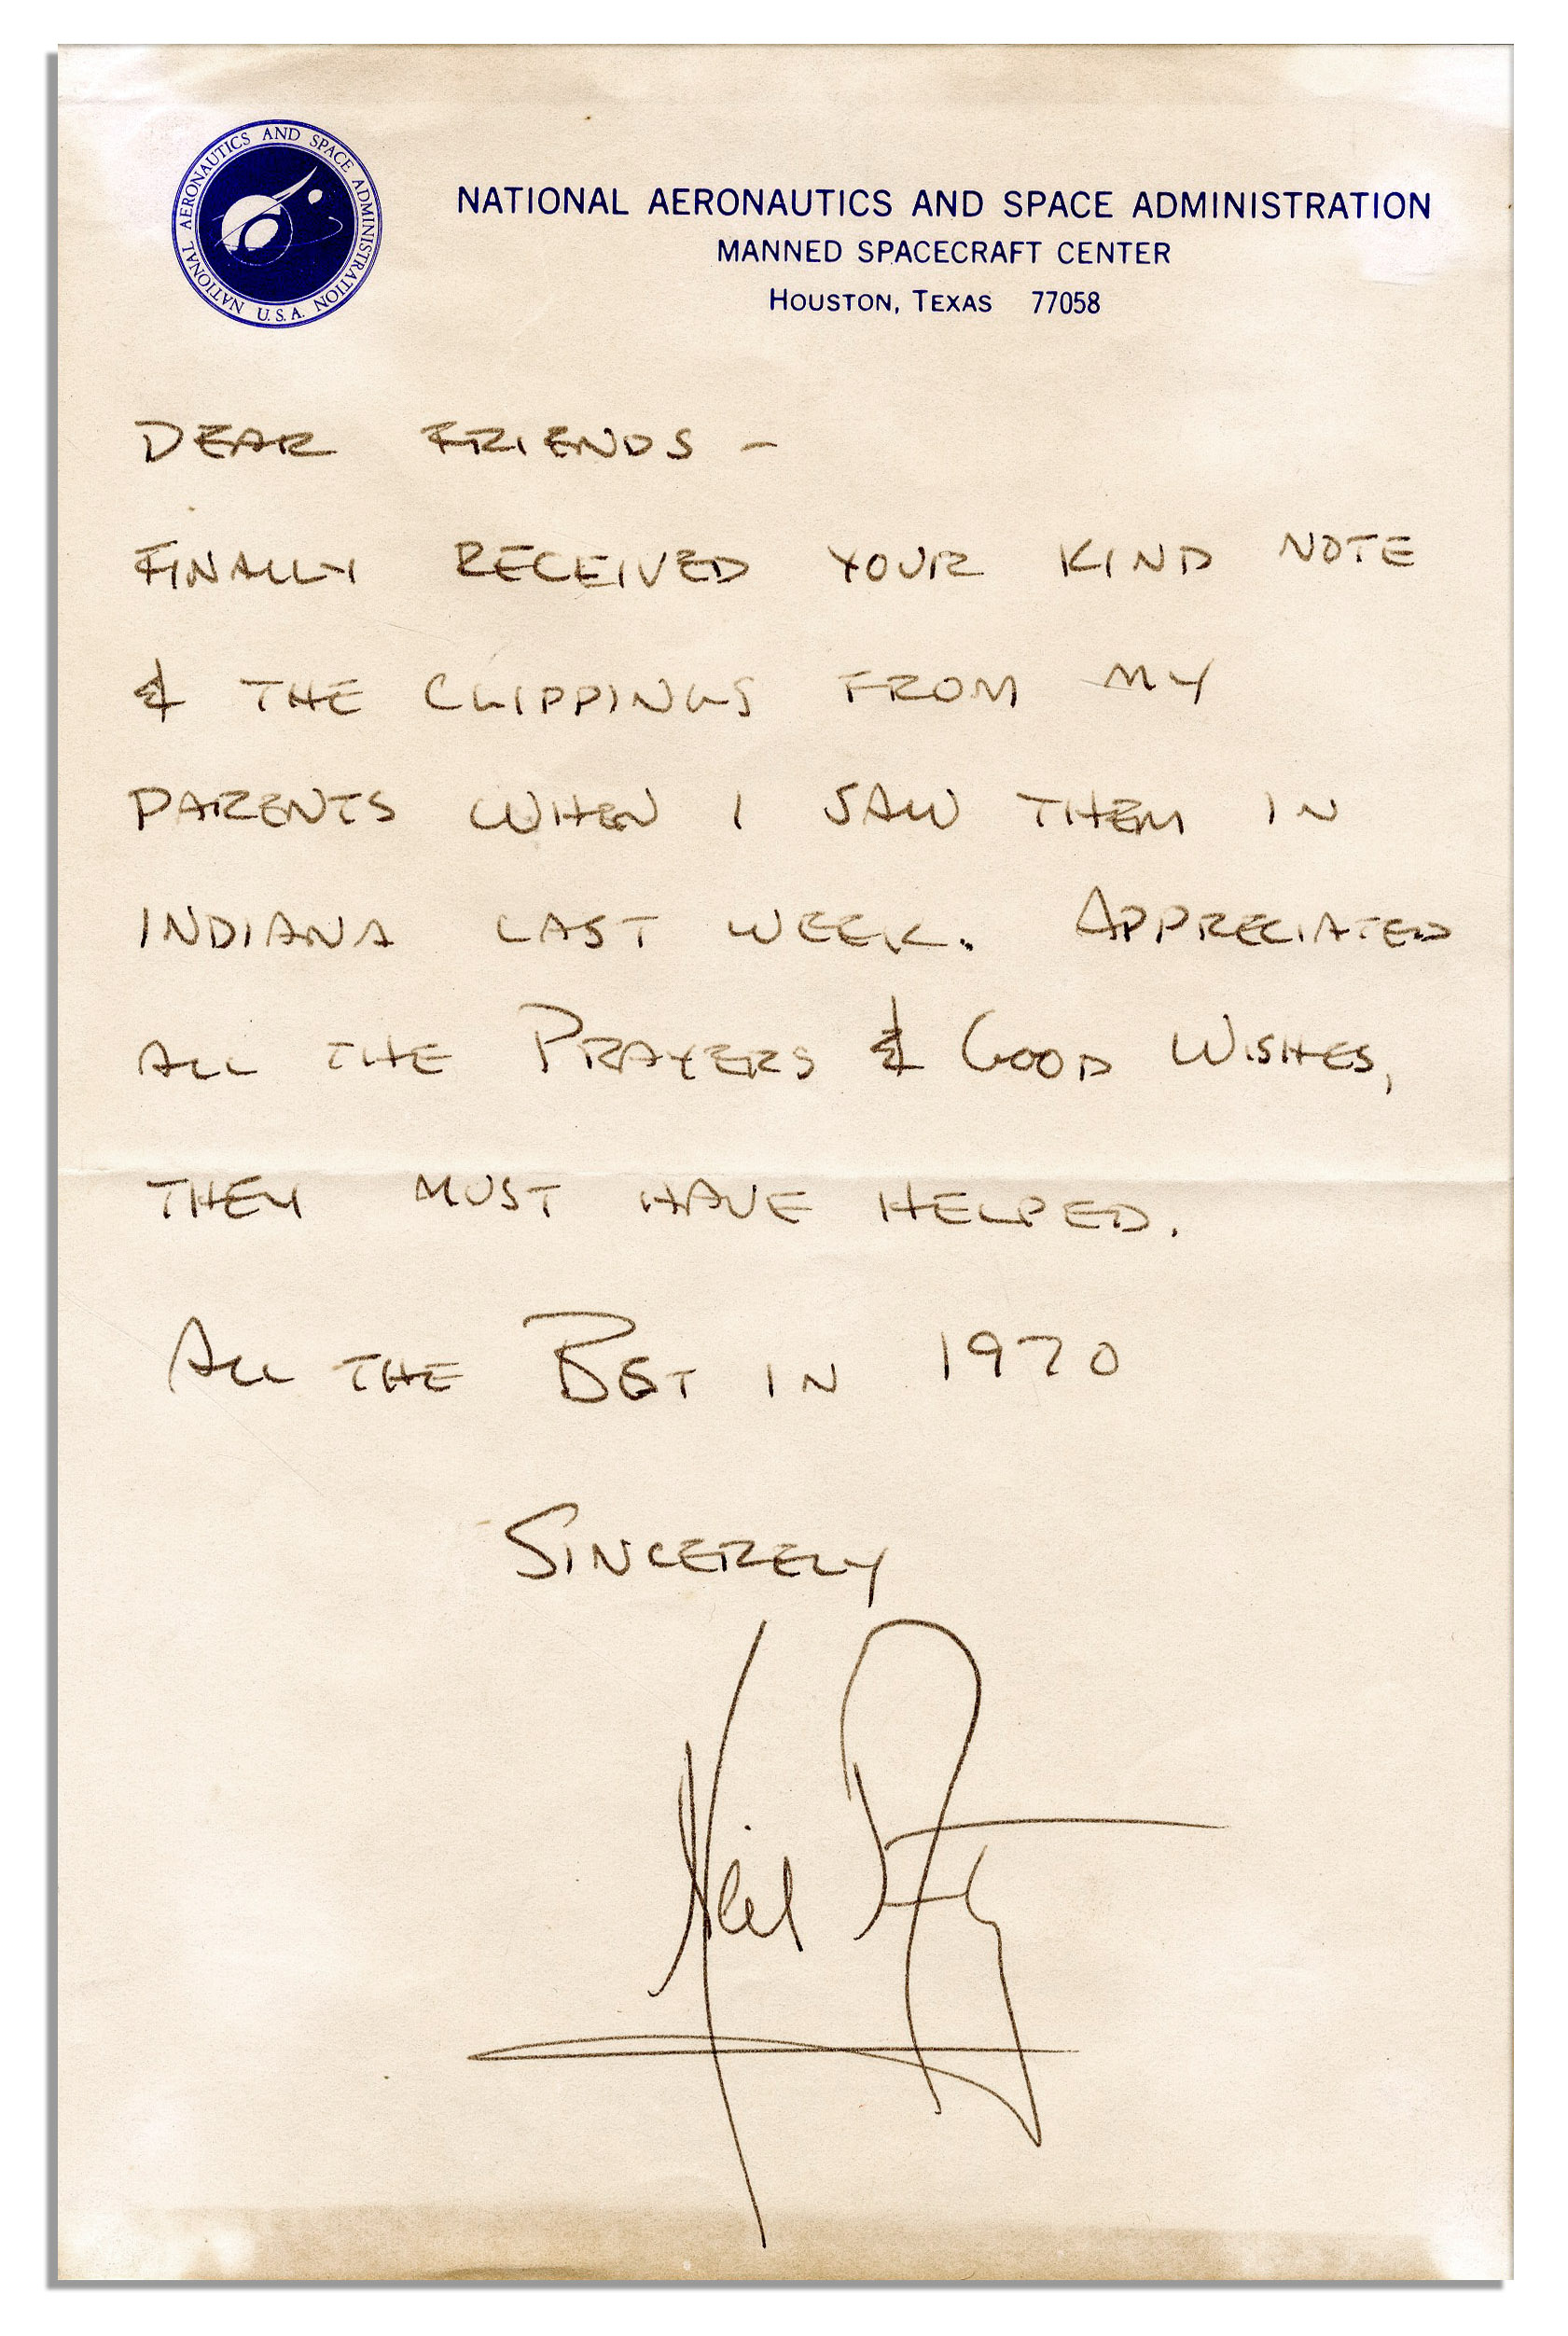 NATIONAL AERONAUTICS AND SPACE ADMINISTRATION
U.S.A.
NATIONAL AERONAUTICS AND SPACE ADMINISTRATION
MANNED SPACECRAFT CENTER
HOUSTON, TEXAS 77058
DEAR FRIENDS -
FINALLY RECEIVED YOUR KIND NOTE
& THE CLIPPINGS FROM MY
PARENTS WHEN I SAW THEM IN
INDIANA LAST WEEK. APPRECIATED
ALL THE PRAYERS & GOOD WISHES,
THEY MUST HAVE HELPED.
ALL THE BEST IN 1970
SINCERELY
Neil